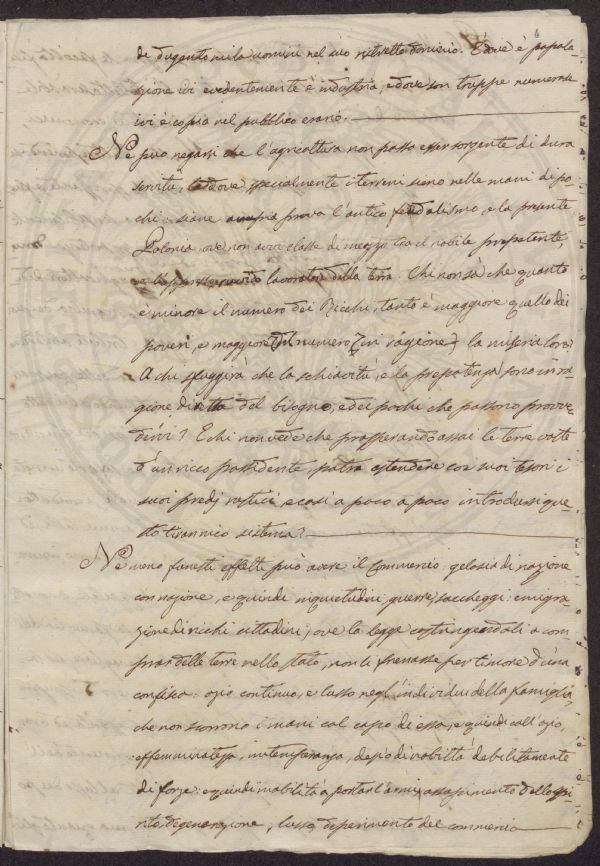 6
di dugento mila uomini nel suo ristretto dominio. E dove è popola
zione ivi evidentemente è industria, e dove son truppe numerose
ivi è copia nel pubblico erario.
Ne puro negarsi che l'agricoltura non possa esser sorgente di dura
servitù, laddove specialmente i terreni sieno nelle mani di po-
chi: siane prova l'antico feudalismo, e la presente
Polonia, ove non avvi classe di mezzo tra il nobile prepotente,
e lavoratore della terra. Chi non sà che quanto
è minore il numero dei Ricchi, tanto è maggiore quello dei
poveri, e maggiore il numero (in ragione) la miseria loro?
A chi sfuggirà che la schiavitù, e la prepotenza sono in ra-
gione diretta del bisogno, e dei pochi che possono provve-
dervi? E chi non vede che prosperando assai le terre colte
d'un ricco possidente, potrà estendere coi suoi tesori i
suoi predj rustici, e così a poco a poco introdursi que-
sto tirannico sistema?
Ne meno funesti effetti può avere il Commercio gelosia di nazione
con nazione, e quindi inquietudini, guerre, saccheggi: emigra-
zione di ricchi cittadini, ove la legge costringendoli a com-
prar delle terre nello stato, non li frenasse per timore d'una
confisca: ozio continuo, e lusso negl'individui della famiglia,
che non sono i mani col capo di essa, e quindi coll'ozio,
effemminatezza, intemperanza, debilitamente
di forze: e quindi inabilità a portar l'armi, dello spi-
rito, degenerazione, lusso, deperimento del commercio